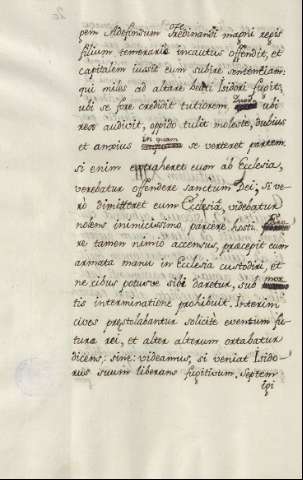 26
pem Aldefundum Ferdinandi magni regis
filium temerarie incautus offendit, et
capitalem iussit eum subire sententiam:
qui miles ad altare beati Isidori fugit,
ubi se fore credidit tutiorem. Quod ubi
rex audivit, oppido tulit moleste, dubius
in quam
et anxius se verteret partem
si enim extraheret eum ab Ecclesia,
verebatur offendere sanctum Dei; si ve-
rò dimitteret eum Ecclesiæ, videbatur
nolens inimicissimo parcere hosti.
re tamen nimio accensus, præcepit eum
armata manu in Ecclesia custodiri, et
ne cibus potusve sibi daretur, sub mor-
tis interminatione prohibuit. Interim
cives præstolabantur solicite eventum fu-
turæ rei, et alter alterum ortabatur
dicens: sine: videamus, si veniat Isido-
rus suum liberans fugitivum. Septem
igi